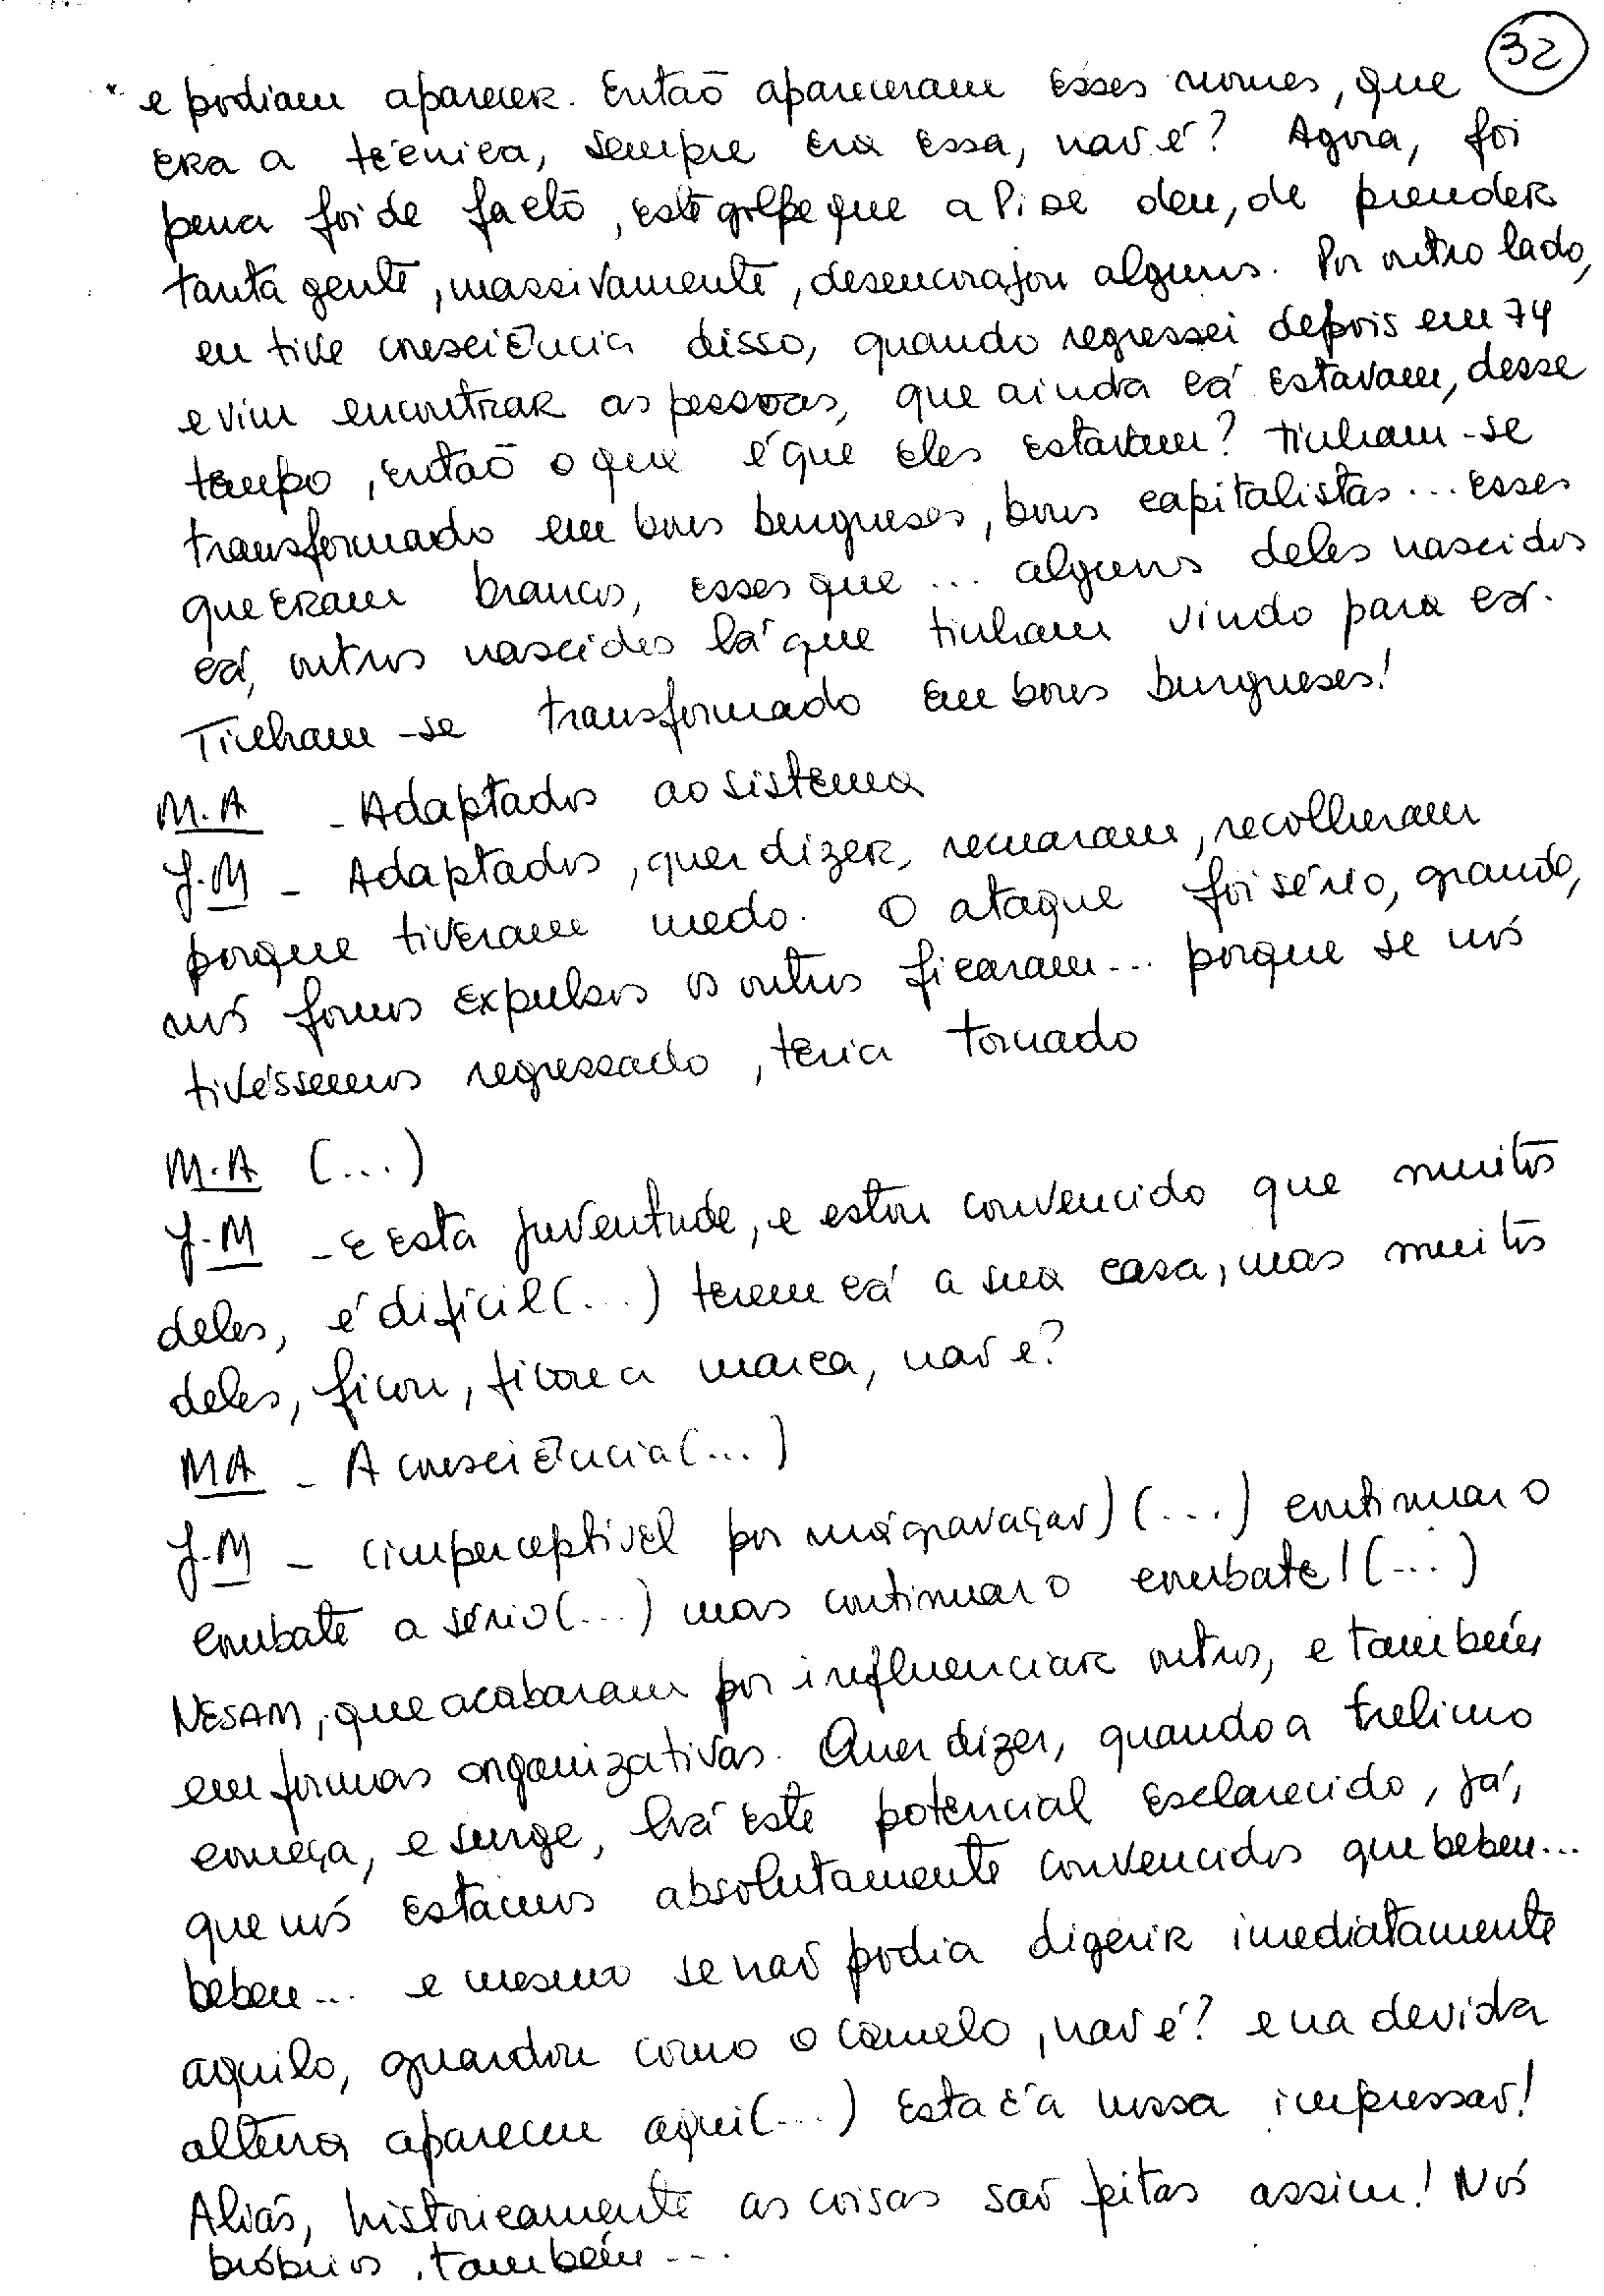 32
e podiam aparecer. Então apareceram esses nomes, que
era a técnica, sempre era essa, não é? Agora, foi
pena foi de facto, este golpe que a Pide deu, de prender
tanta gente, massivamente, desencorajou alguns. Por outro lado,
eu tive consciência disso, quando regressei depois em 74
e vim encontrar as pessoas, que ainda cá estavam, desse
tempo, então o que é que eles estavam? tinham-se
transformado em bons burgueses, bons capitalistas... esses
que eram brancos, esses que ... alguns deles nascidos
cá, outros nascidos lá que tinham vindo para cá.
Tinham-se transformado em bons burgueses!
M.A - Adaptados ao sistema
J.M - Adaptados, quer dizer, recuaram, recolheram
porque tiveram medo. O ataque foi sério, grande,
nós fomos expulsos os outros ficaram... porque se nós
tivéssemos regressado, teria tornado
M.A (...)
J.M - E esta juventude, e estou convencido que muitos
deles, é difícil (...) terem cá a sua casa, mas muitos
deles, ficou, ficou a marca, não e?
MA - A consciência (...)
J.M - (imperceptível por má gravação) (...) continuar o
combate a sério (...) mas continuar o combate! (...)
NESAM, que acabaram por influenciar outros, e também
em formas organizativas. Quer dizer, quando a frelimo
começa, e surge, há este potencial esclarecido, já,
que nós estamos absolutamente convencidos que bebeu...
bebeu... e mesmo se não podia digerir imediatamente
aquilo, guardou como o camelo, não é? e na devida
altura apareceu aqui (...) Esta é a nossa impressão!
Aliás, historicamente as coisas são feitas assim! Nós
próprios, também ...